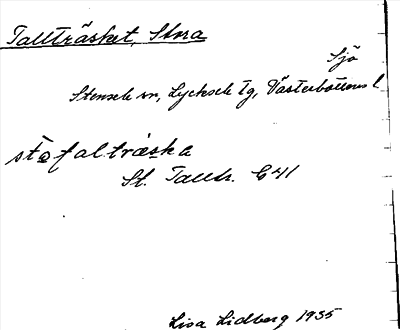 Tallträsket, Stora
Sjö
Stensele sn, Lycksele tg, Västerbottens l
St. Talltr. C41
Lisa Lidberg 1935